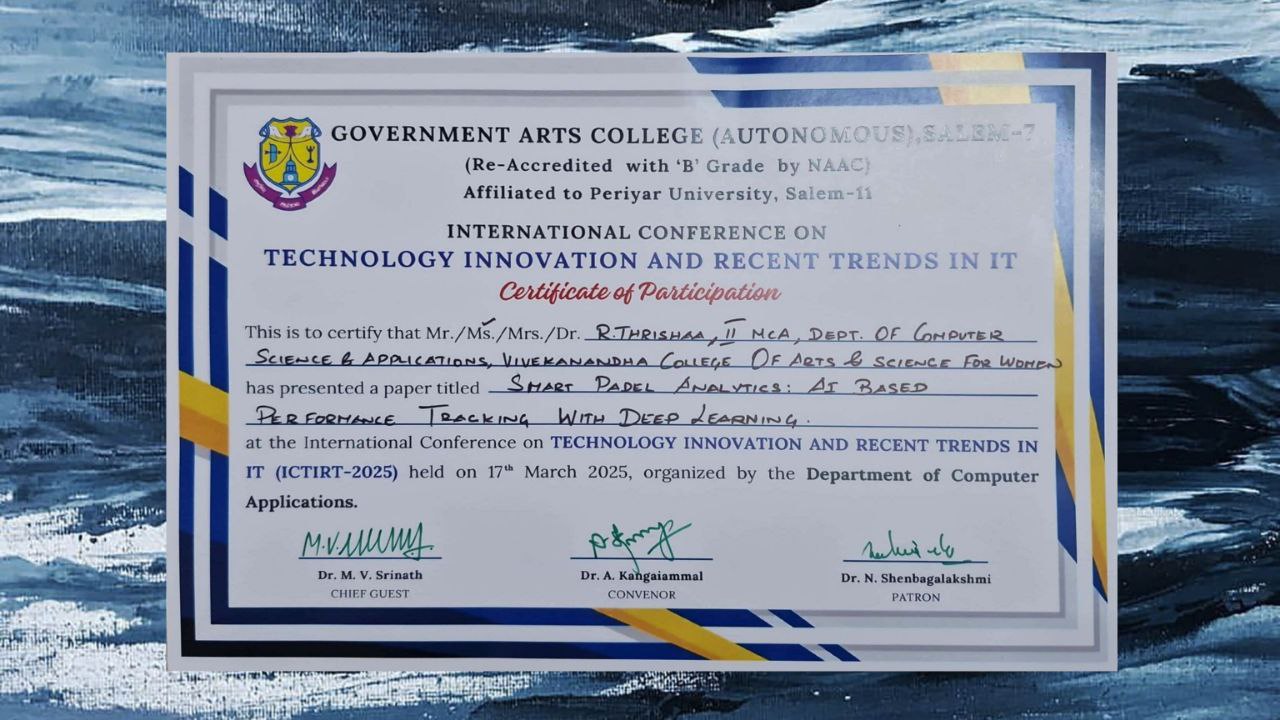 GOVERNMENT ARTS COLLEGE (AUTONOMOUS),SALEM-7
(Re-Accredited with ‘B’ Grade by NAAC)
Affiliated to Periyar University, Salem-11
INTERNATIONAL CONFERENCE ON
TECHNOLOGY INNOVATION AND RECENT TRENDS IN IT
Certificate of Participation
This is to certify that Mr./Ms./Mrs./Dr. R.THRISHAA, II MCA, DEPT. OF COMPUTER
SCIENCE & APPLICATIONS, VIVEKANANDHA COLLEGE OF ARTS & SCIENCE FOR WOMEN
has presented a paper titled SMART PADEL ANALYTICS: AI BASED
PERFORMANCE TRACKING WITH DEEP LEARNING.
at the International Conference on TECHNOLOGY INNOVATION AND RECENT TRENDS IN
IT (ICTIRT-2025) held on 17th March 2025, organized by the Department of Computer
Applications.
Dr. M. V. Srinath
CHIEF GUEST
Dr. A. Kangaiammal
CONVENOR
Dr. N. Shenbagalakshmi
PATRON